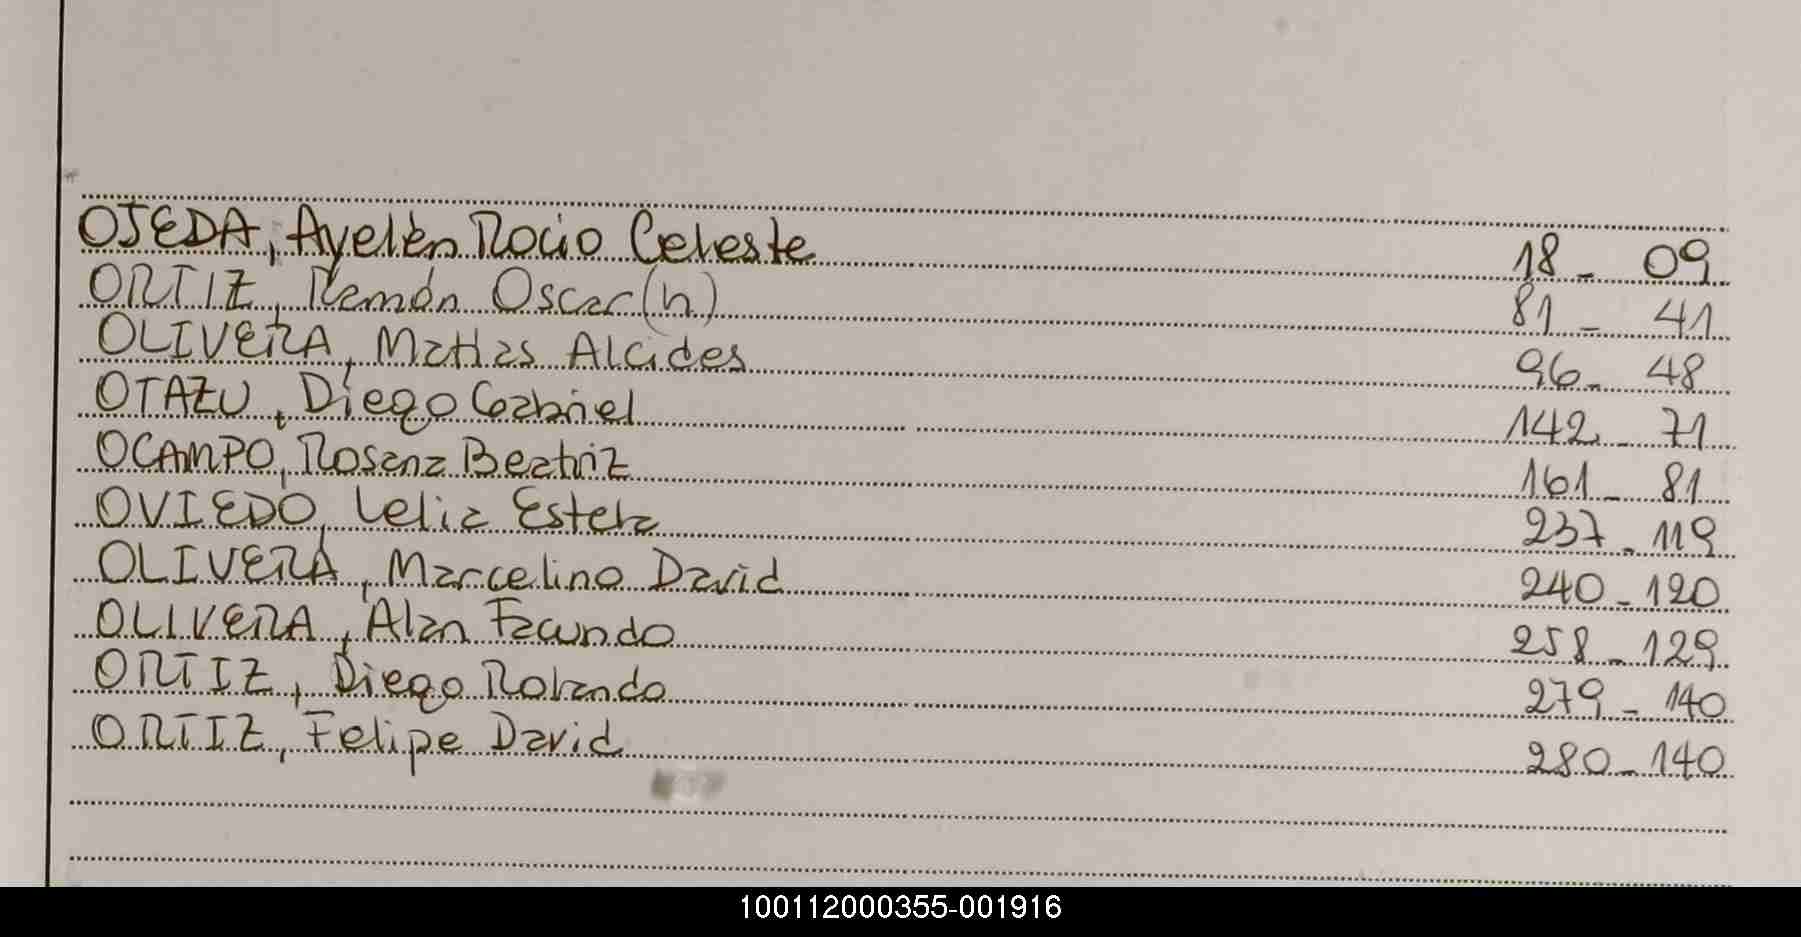 OJEDA, Ayelén Rocio Celeste 18 - 09
ORTIZ, Ramón Oscar (h) 81 - 41
OLIVERA, Matias Alcides 96 - 48
OTAZU, Diego Gabriel 142 - 71
OCAMPO, Rosana Beatriz 161 - 81
OVIEDO, Lelia Estela 237 - 119
OLIVERA, Marcelino David 240 - 120
OLIVERA, Alan Facundo 258 - 129
ORTIZ, Diego Rolando 279 - 140
ORTIZ, Felipe David 280 - 140
100112000355-001916